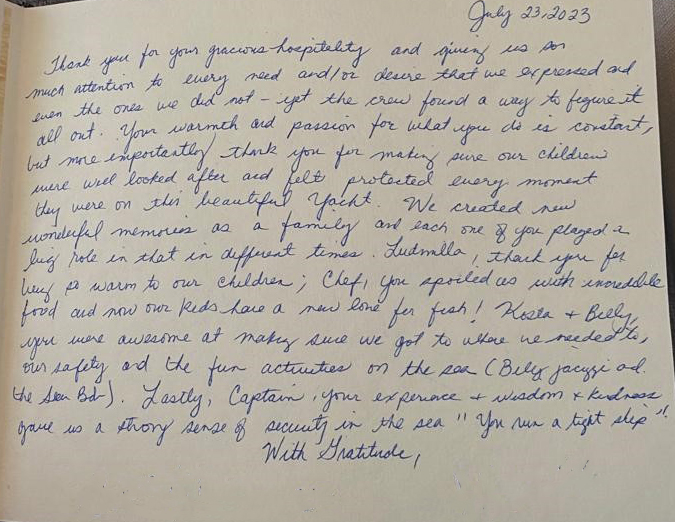 July 23, 2023
Thank you for your gracious hospitality and giving us so
much attention to every need and/or desire that we expressed and
even the ones we did not - yet the crew found a way to figure it
all out. Your warmth and passion for what you do is constant,
but more importantly thank you for making sure our children
were well looked after and felt protected every moment
they were on this beautiful Yacht. We created new
wonderful memories as a family and each one of you played a
big role in that in different times. Ludmilla, thank you for
being so warm to our children; Chef, you spoiled us with incredible
food and now our kids have a new love for fish! Kosta + Billy,
you were awesome at making sure we got to where we needed to,
our safety and the fun activities on the sea (Billy jacuzzi and
the Sea). Lastly, Captain, your experience + wisdom + kindness
gave us a strong sense of security in the sea "You run a tight ship".
With Gratitude,